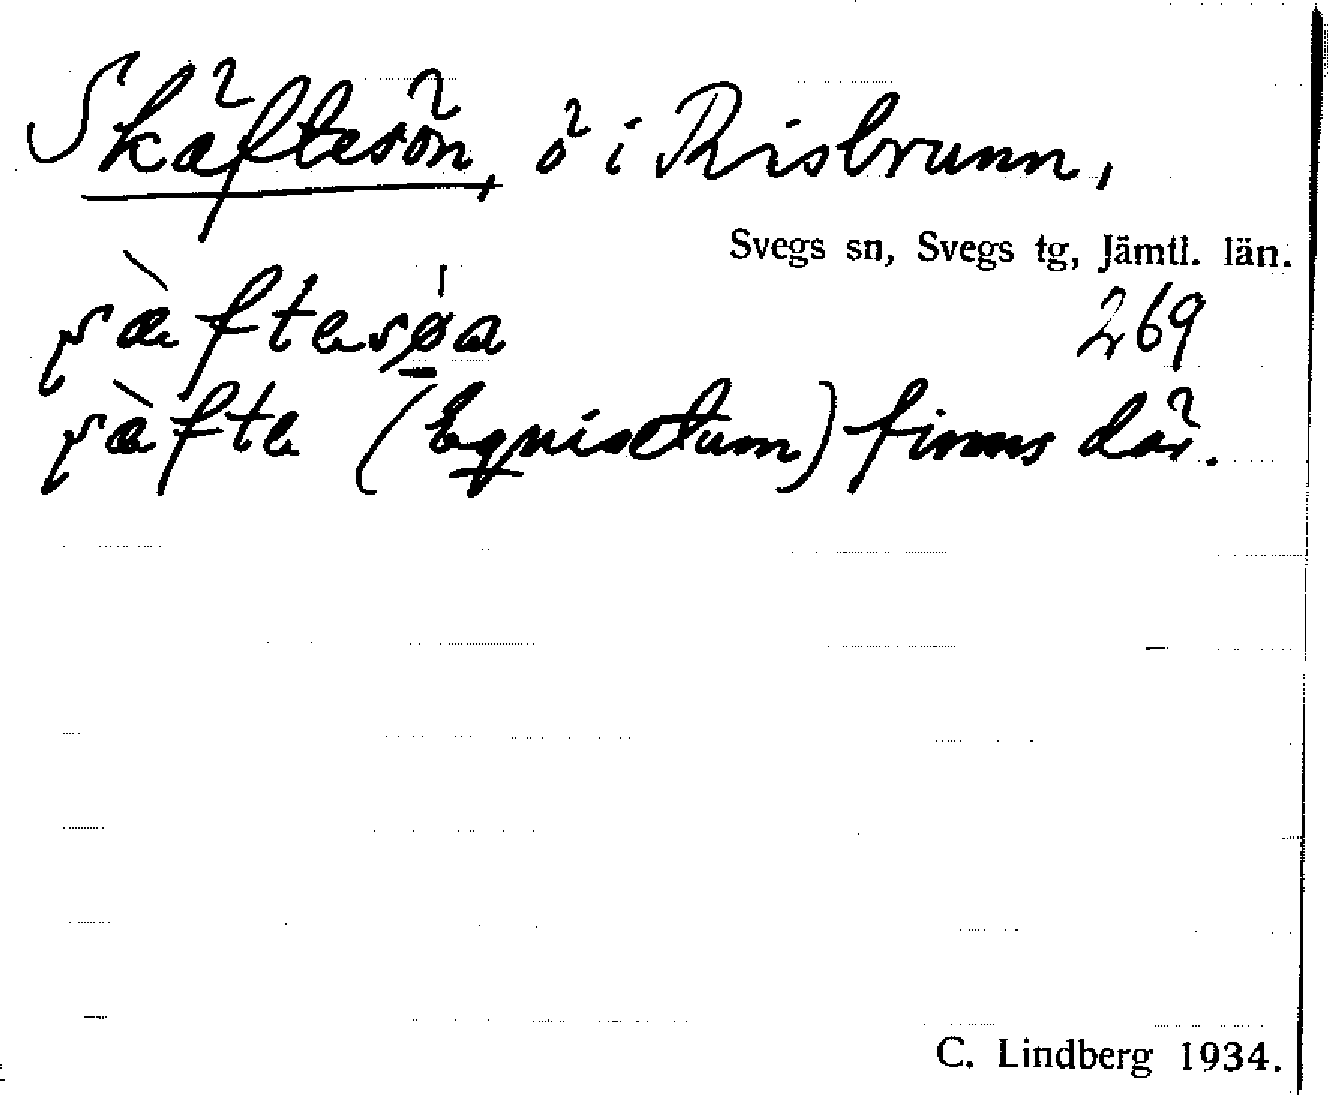 Skäftesön, ö i Risbrunn,
Svegs sn, Svegs tg, Jämtl. län.
ʃæ̀ftesøa 269
ʃæ̀fte (Equisetum) finns där.
C. Lindberg 1934.